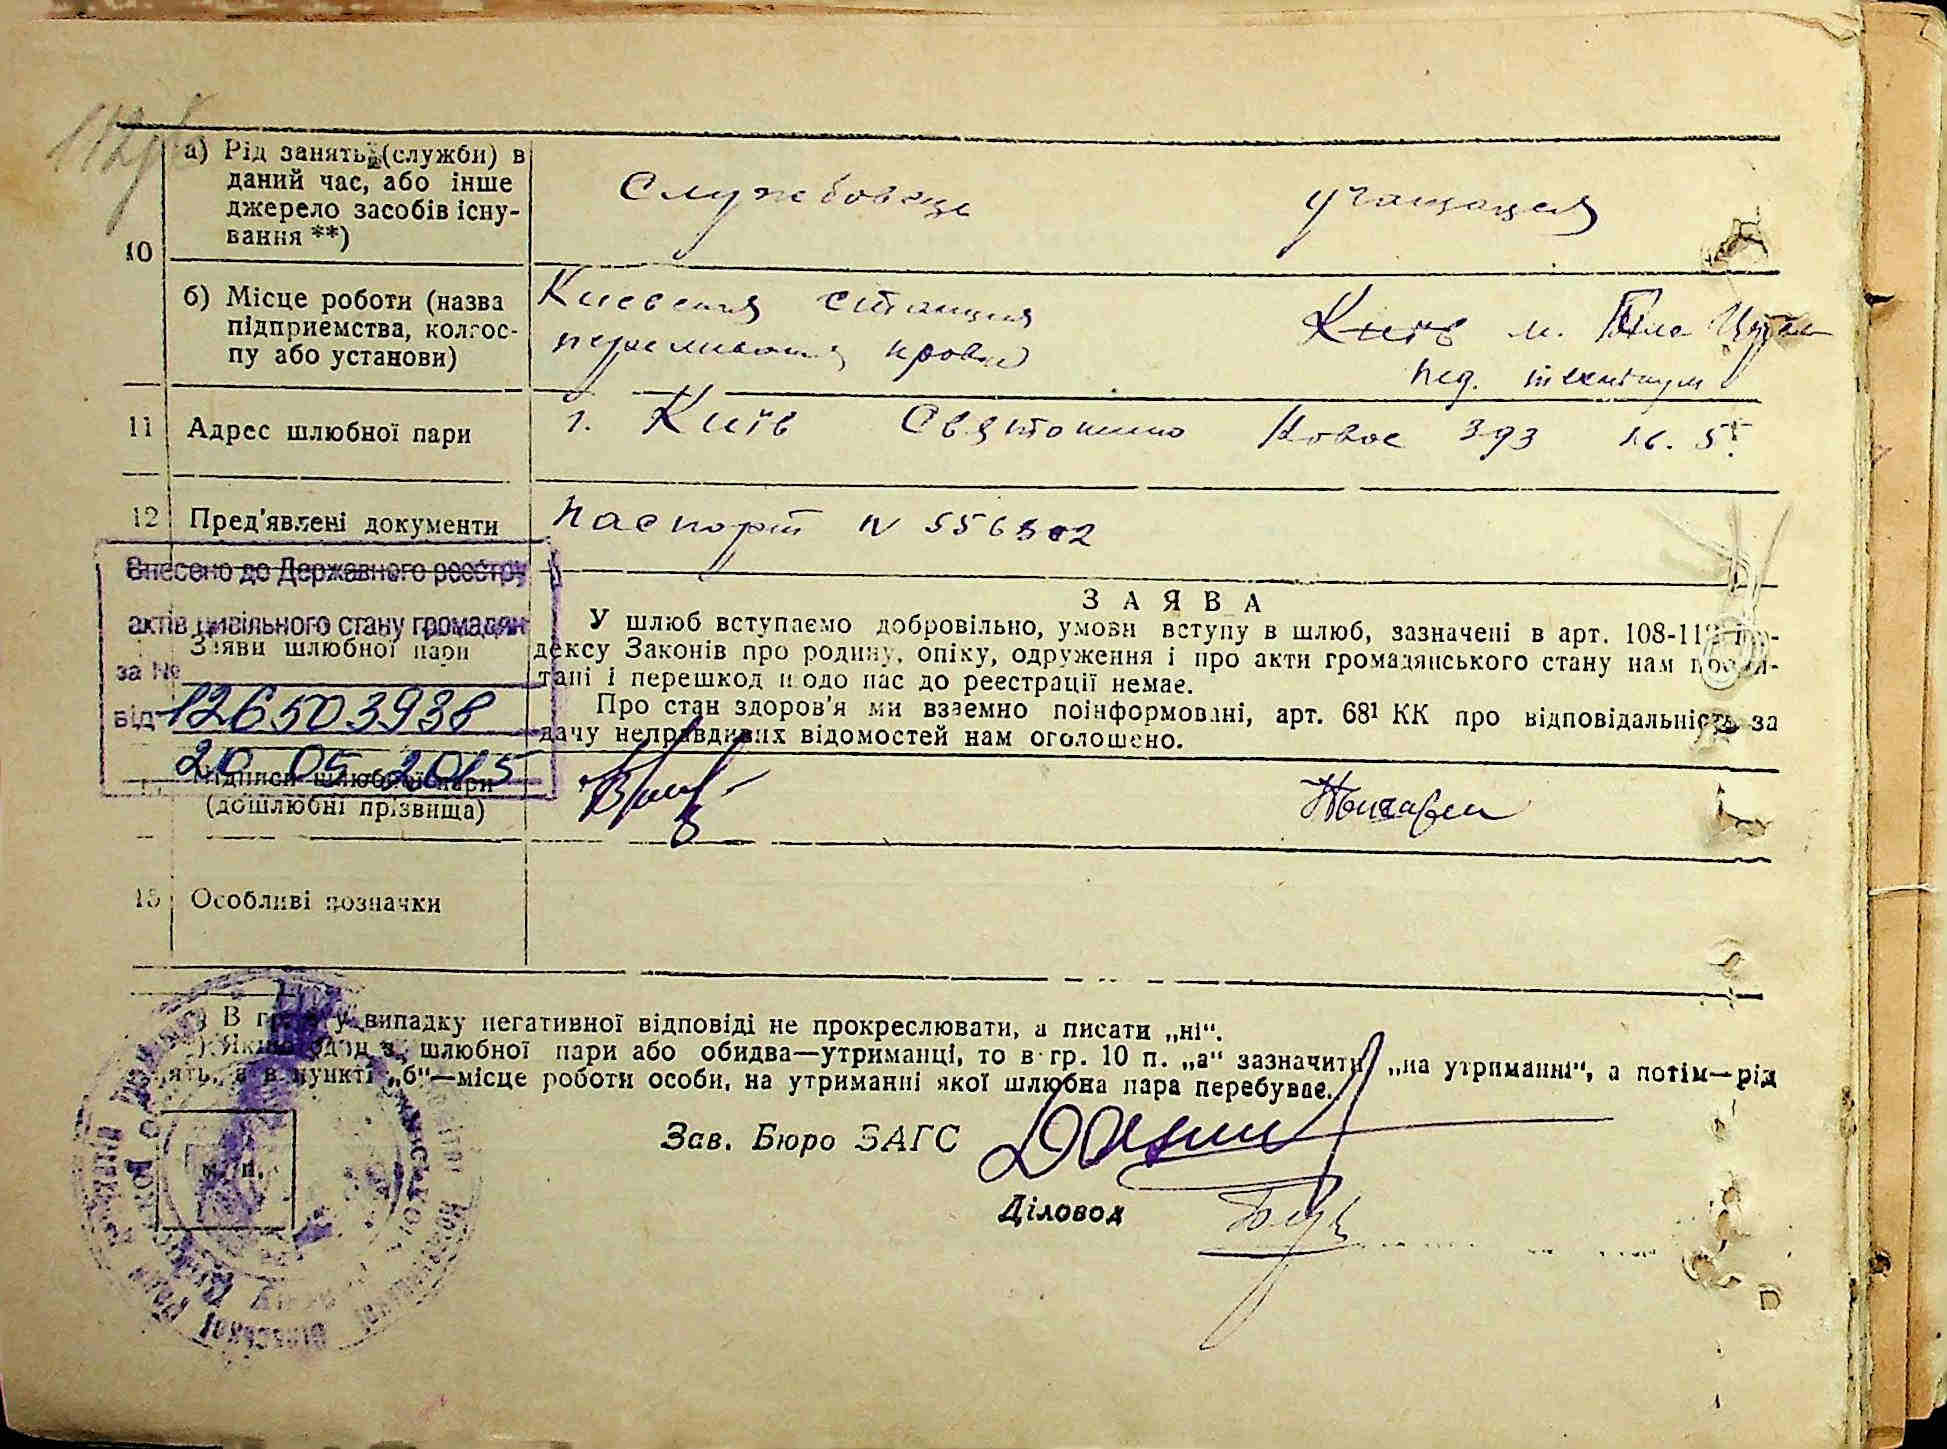 10
а) Рід занять (служби) в
даний час, або інше
джерело засобів існу-
вання **)
Службовець
учащаяся
б) Місце роботи (назва
підприємства, колгос-
пу або установи)
Киевская станция
переливания крови
Київ м. Біла Церква
пед. технікум
11 Адрес шлюбної пари
г. Київ Святошино Новое 393 кв. 55
12 Пред'явлені документи
Паспорт N 556302
Внесено до Державного реєстру
актів цивільного стану громадян
за №
126503938
від
20 05 2015
Заяви шлюбної пари
ЗАЯВА
У шлюб вступаємо добровільно, умови вступу в шлюб, зазначені в арт. 108-112
дексу Законів про родину, опіку, одруження і про акти громадянського стану нам
тані і перешкод щодо нас до реєстрації немає.
Про стан здоров'я ми взаємно поінформовані, арт. 68¹ КК про відповідальність за
дачу неправдивих відомостей нам оголошено.
Підписи шлюбної пари
(дошлюбні прізвища)
15 Особливі позначки
В у випадку негативної відповіді не прокреслювати, а писати „ні“.
Якщо один з шлюбної пари або обидва—утриманці, то в гр. 10 п. „а“ зазначити „на утриманні“, а потім—рід
занять, а в пункті „б“—місце роботи особи, на утриманні якої шлюбна пара перебуває.
Зав. Бюро ЗАГС
Діловод
м. п.